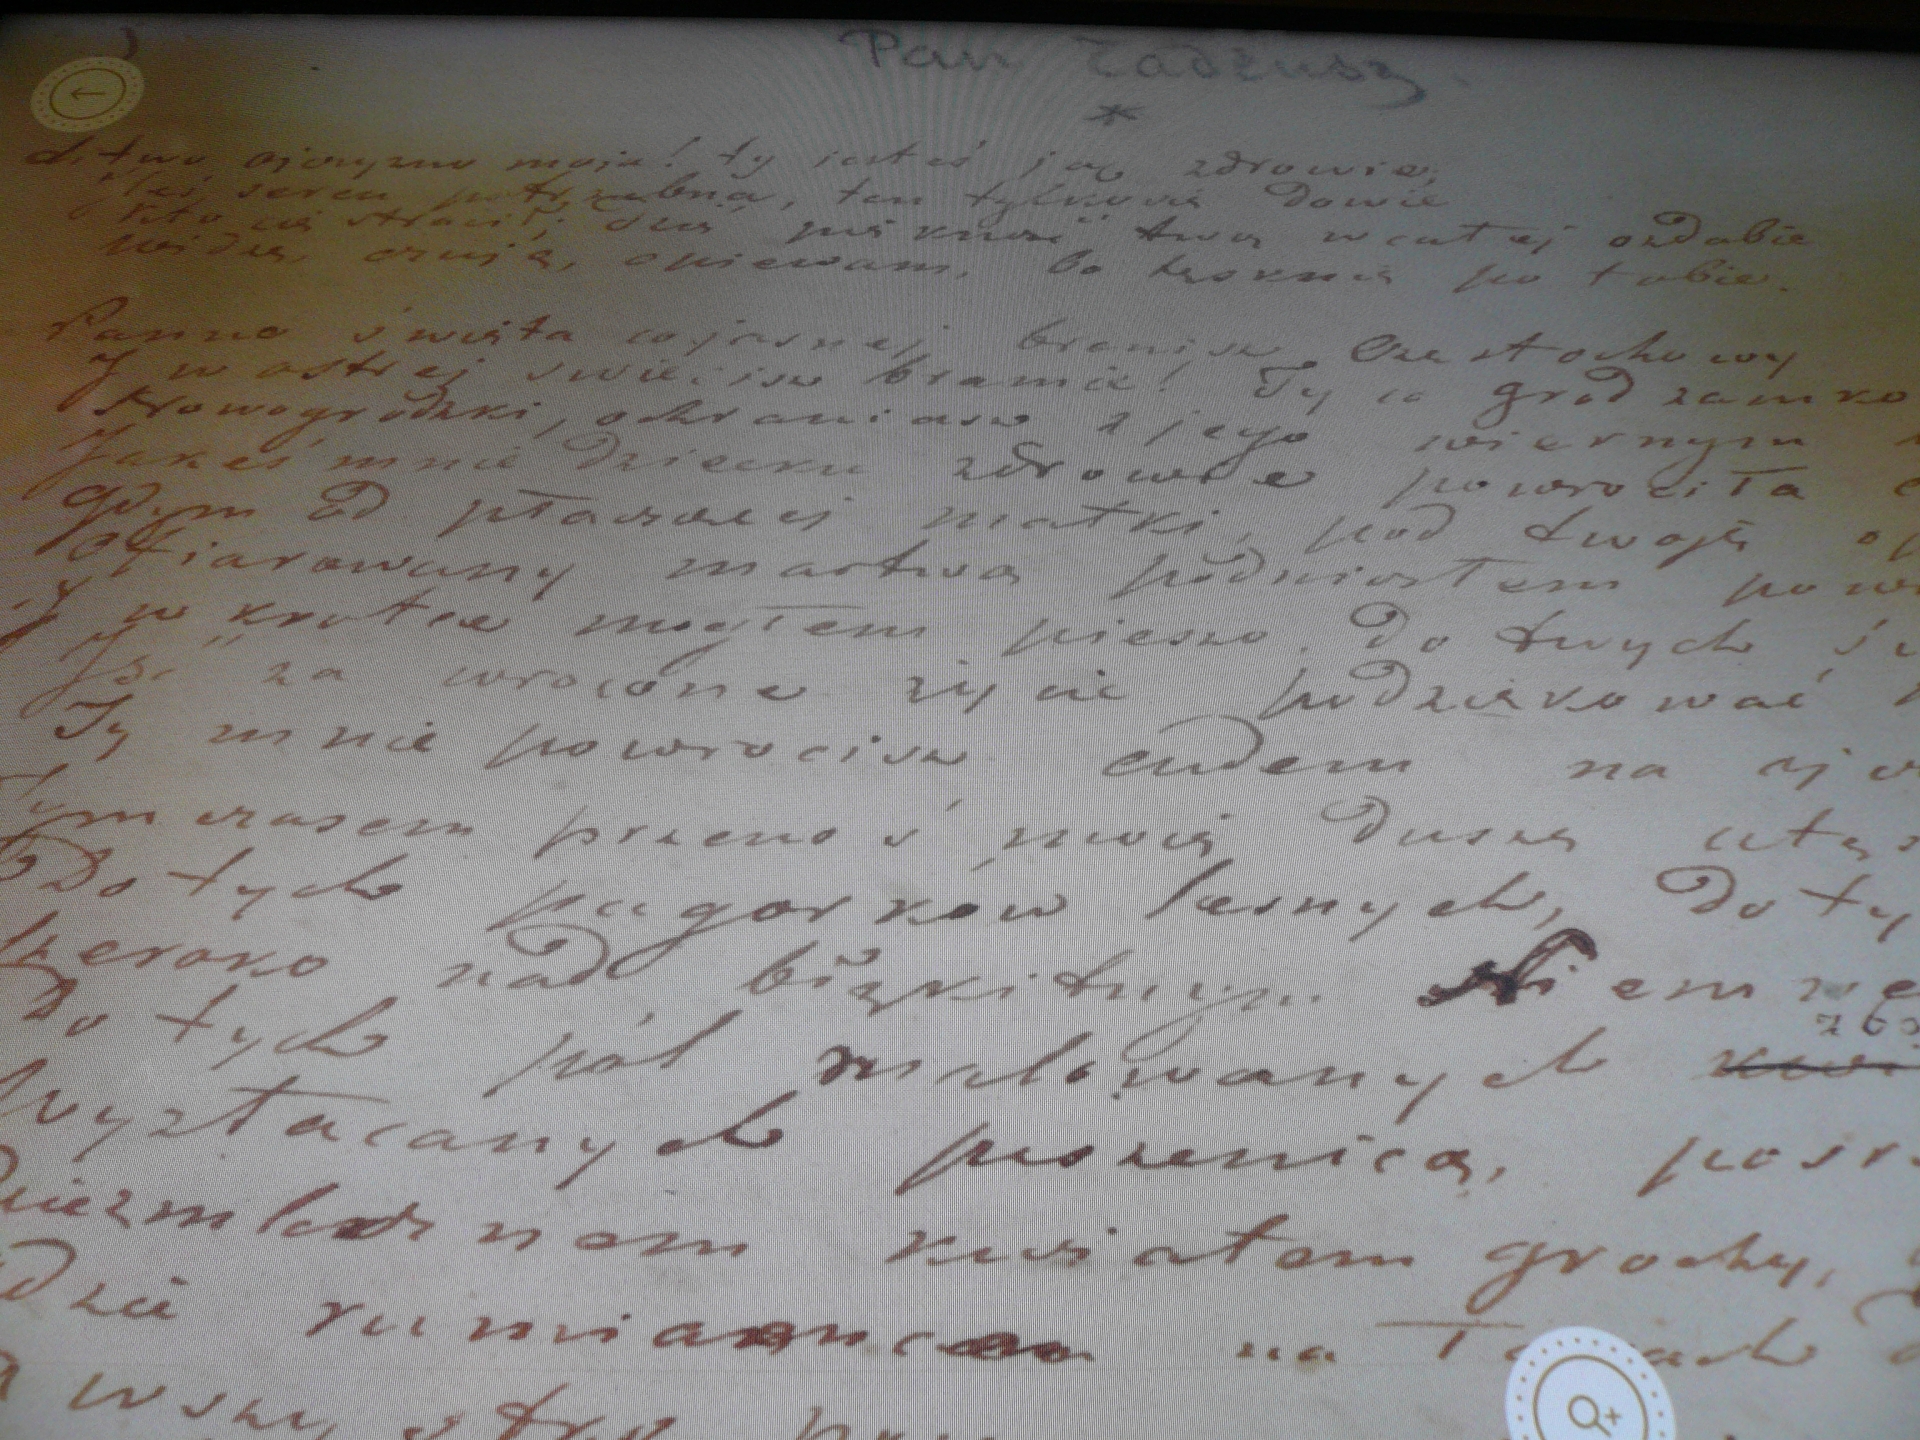 Pan Tadeusz.
*
Litwo, ojczyzno moja! ty jesteś jak zdrowie;
potrzebna, ten tylko się dowie
Kto cię stracił; dziś piękność twą w całej ozdobie
widzę, czuję, opiewam, bo tęsknię po tobie.
Panno święta co jasnej bronisz Częstochowy
I w ostrej świécisz bramie! Ty co gród zamko
Nowogródzki, ochraniasz z jego wiernym
Jakeś mnie dziecku zdrowie powróciła
Gdym od płaczącej matki, pod twoję op
Ofiarowany martwą podniosłem pow
I w krotce mogłem pieszo, do twych św
Iść za wrócone życie podziękować
Ty mnie powrócisz cudem na ojcz
Tymczasem przenoś moję duszę utęs
Do tych pagórków leśnych, do ty
Szeroko nad błękitnym Niemne
zbo
Do tych pól malowanych kwi
Wyzłacanych pszenicą, posr
kwiatem grochy,
Gdzie rumiancem na łąkach
A wszystko prze